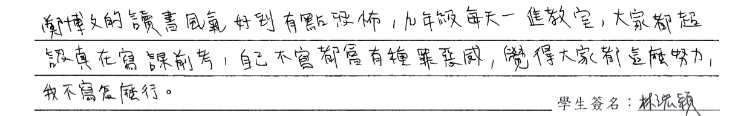 鄭博文的讀書風氣好到有點恐怖，九年級每天一進教室，大家都超
認真在寫課前考，自己不寫都會有種罪惡感，覺得大家都這麼努力，
我不寫怎麼行。
學生簽名：林